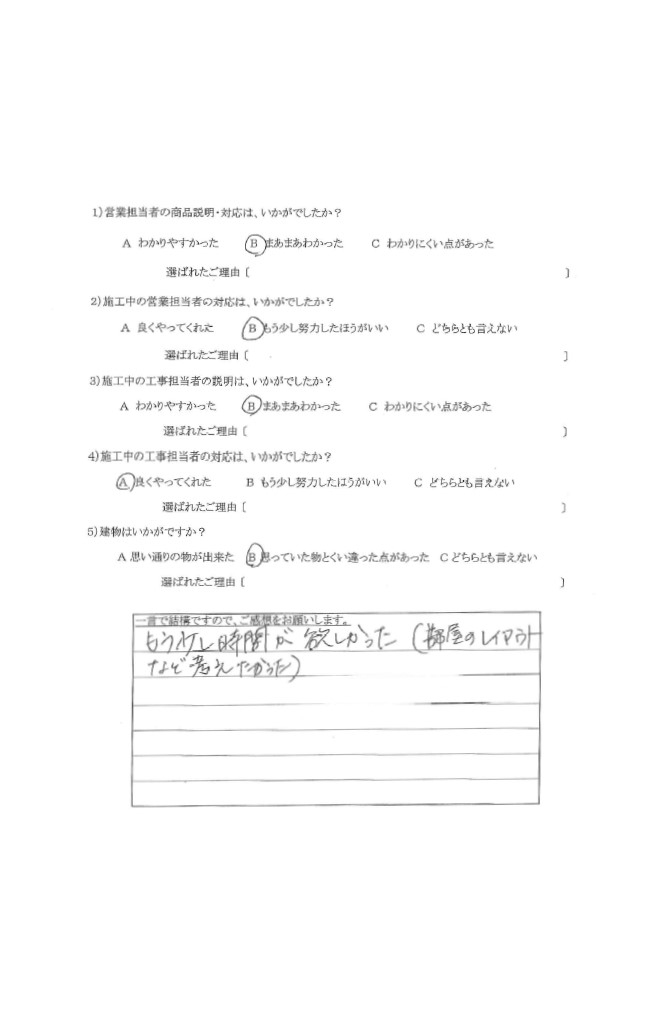 1)営業担当者の商品説明・対応は、いかがでしたか？
A わかりやすかった B まあまあわかった C わかりにくい点があった
選ばれたご理由〔 〕
2)施工中の営業担当者の対応は、いかがでしたか？
A 良くやってくれた B もう少し努力したほうがいい C どちらとも言えない
選ばれたご理由〔 〕
3)施工中の工事担当者の説明は、いかがでしたか？
A わかりやすかった B まあまあわかった C わかりにくい点があった
選ばれたご理由〔 〕
4)施工中の工事担当者の対応は、いかがでしたか？
A 良くやってくれた B もう少し努力したほうがいい C どちらとも言えない
選ばれたご理由〔 〕
5)建物はいかがですか？
A 思い通りの物が出来た B 思っていた物とくい違った点があった C どちらとも言えない
選ばれたご理由〔 〕
一言で結構ですので、ご感想をお願いします。
もう少し時間が欲しかった（部屋のレイアウト
など考えたかった）